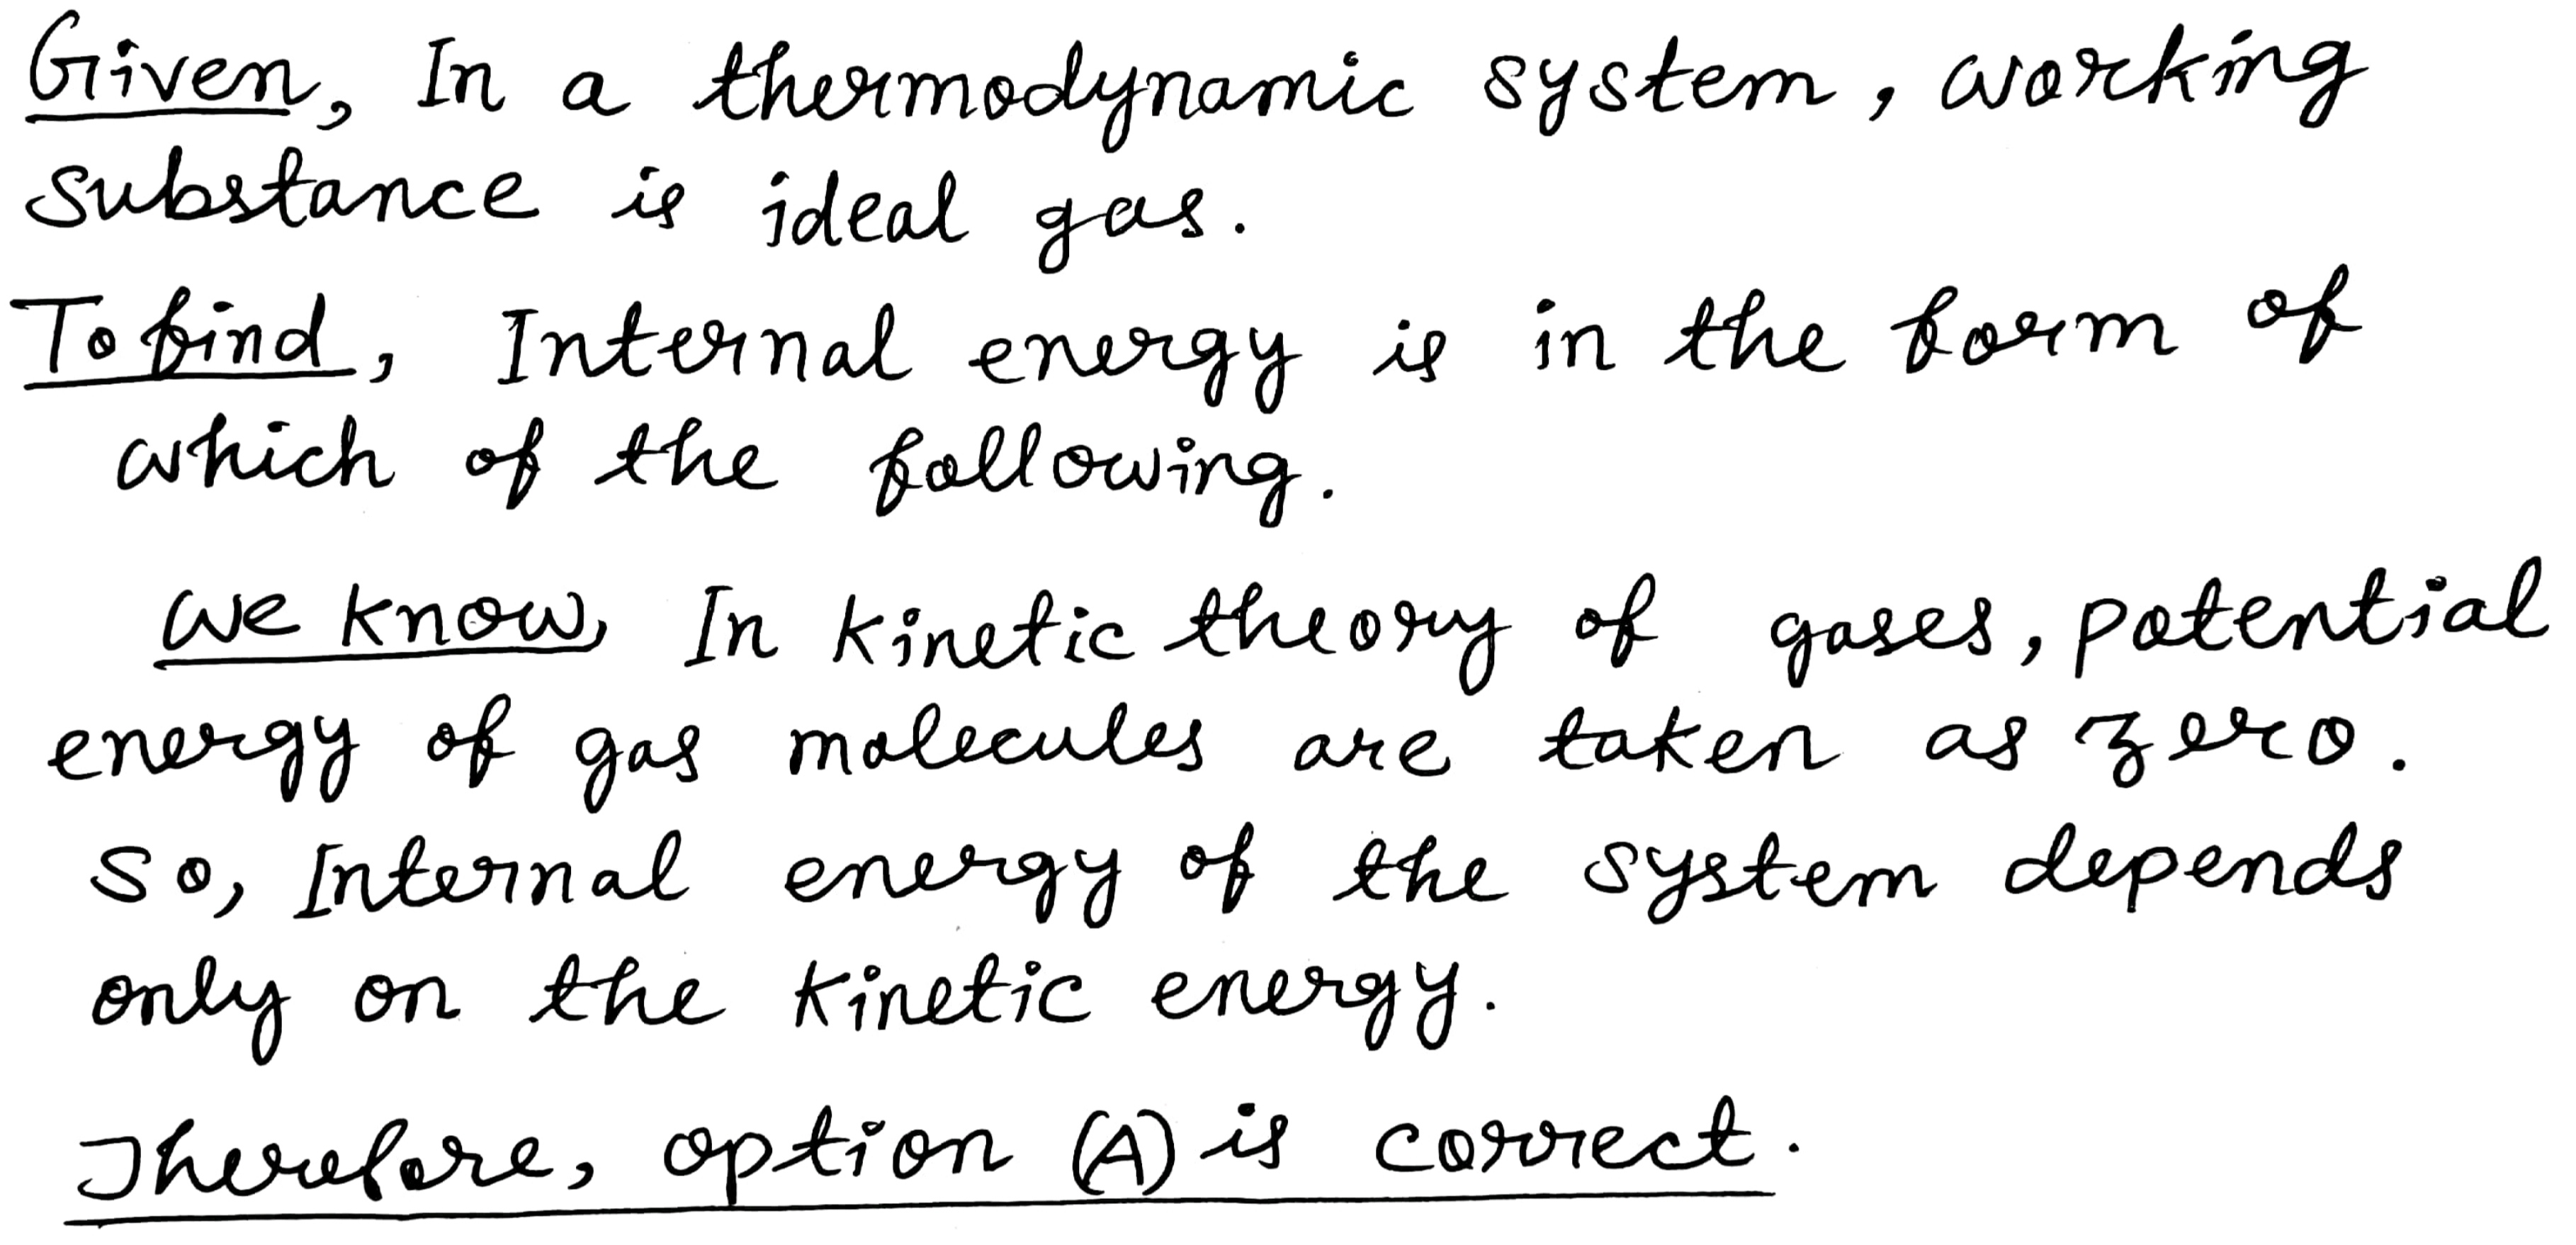 Given, In a thermodynamic system, working
substance is ideal gas.
To find, Internal energy is in the form of
which of the following.
we know, In kinetic theory of gases, potential
energy of gas molecules are taken as zero.
So, Internal energy of the system depends
only on the kinetic energy.
Therefore, option (A) is correct.